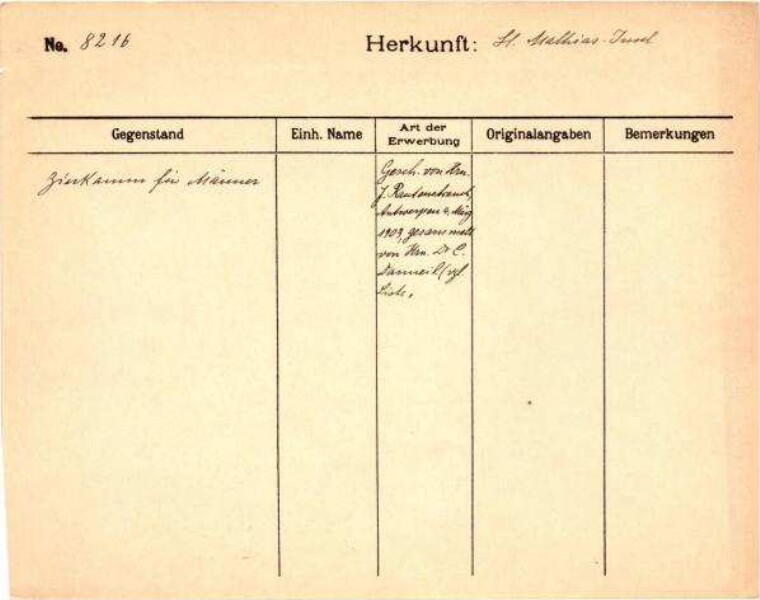 No. 8216 Herkunft: St. Mathias-Insel
Gegenstand Einh. Name Art der Erwerbung Originalangaben Bemerkungen
Zierkamm für Männer
Gesch. von Hrn.
J. Rautenstrauch,
Antwerpen, März
1903, gesammelt
von Hrn. Dr C.
Danneil (vgl.
Liste.